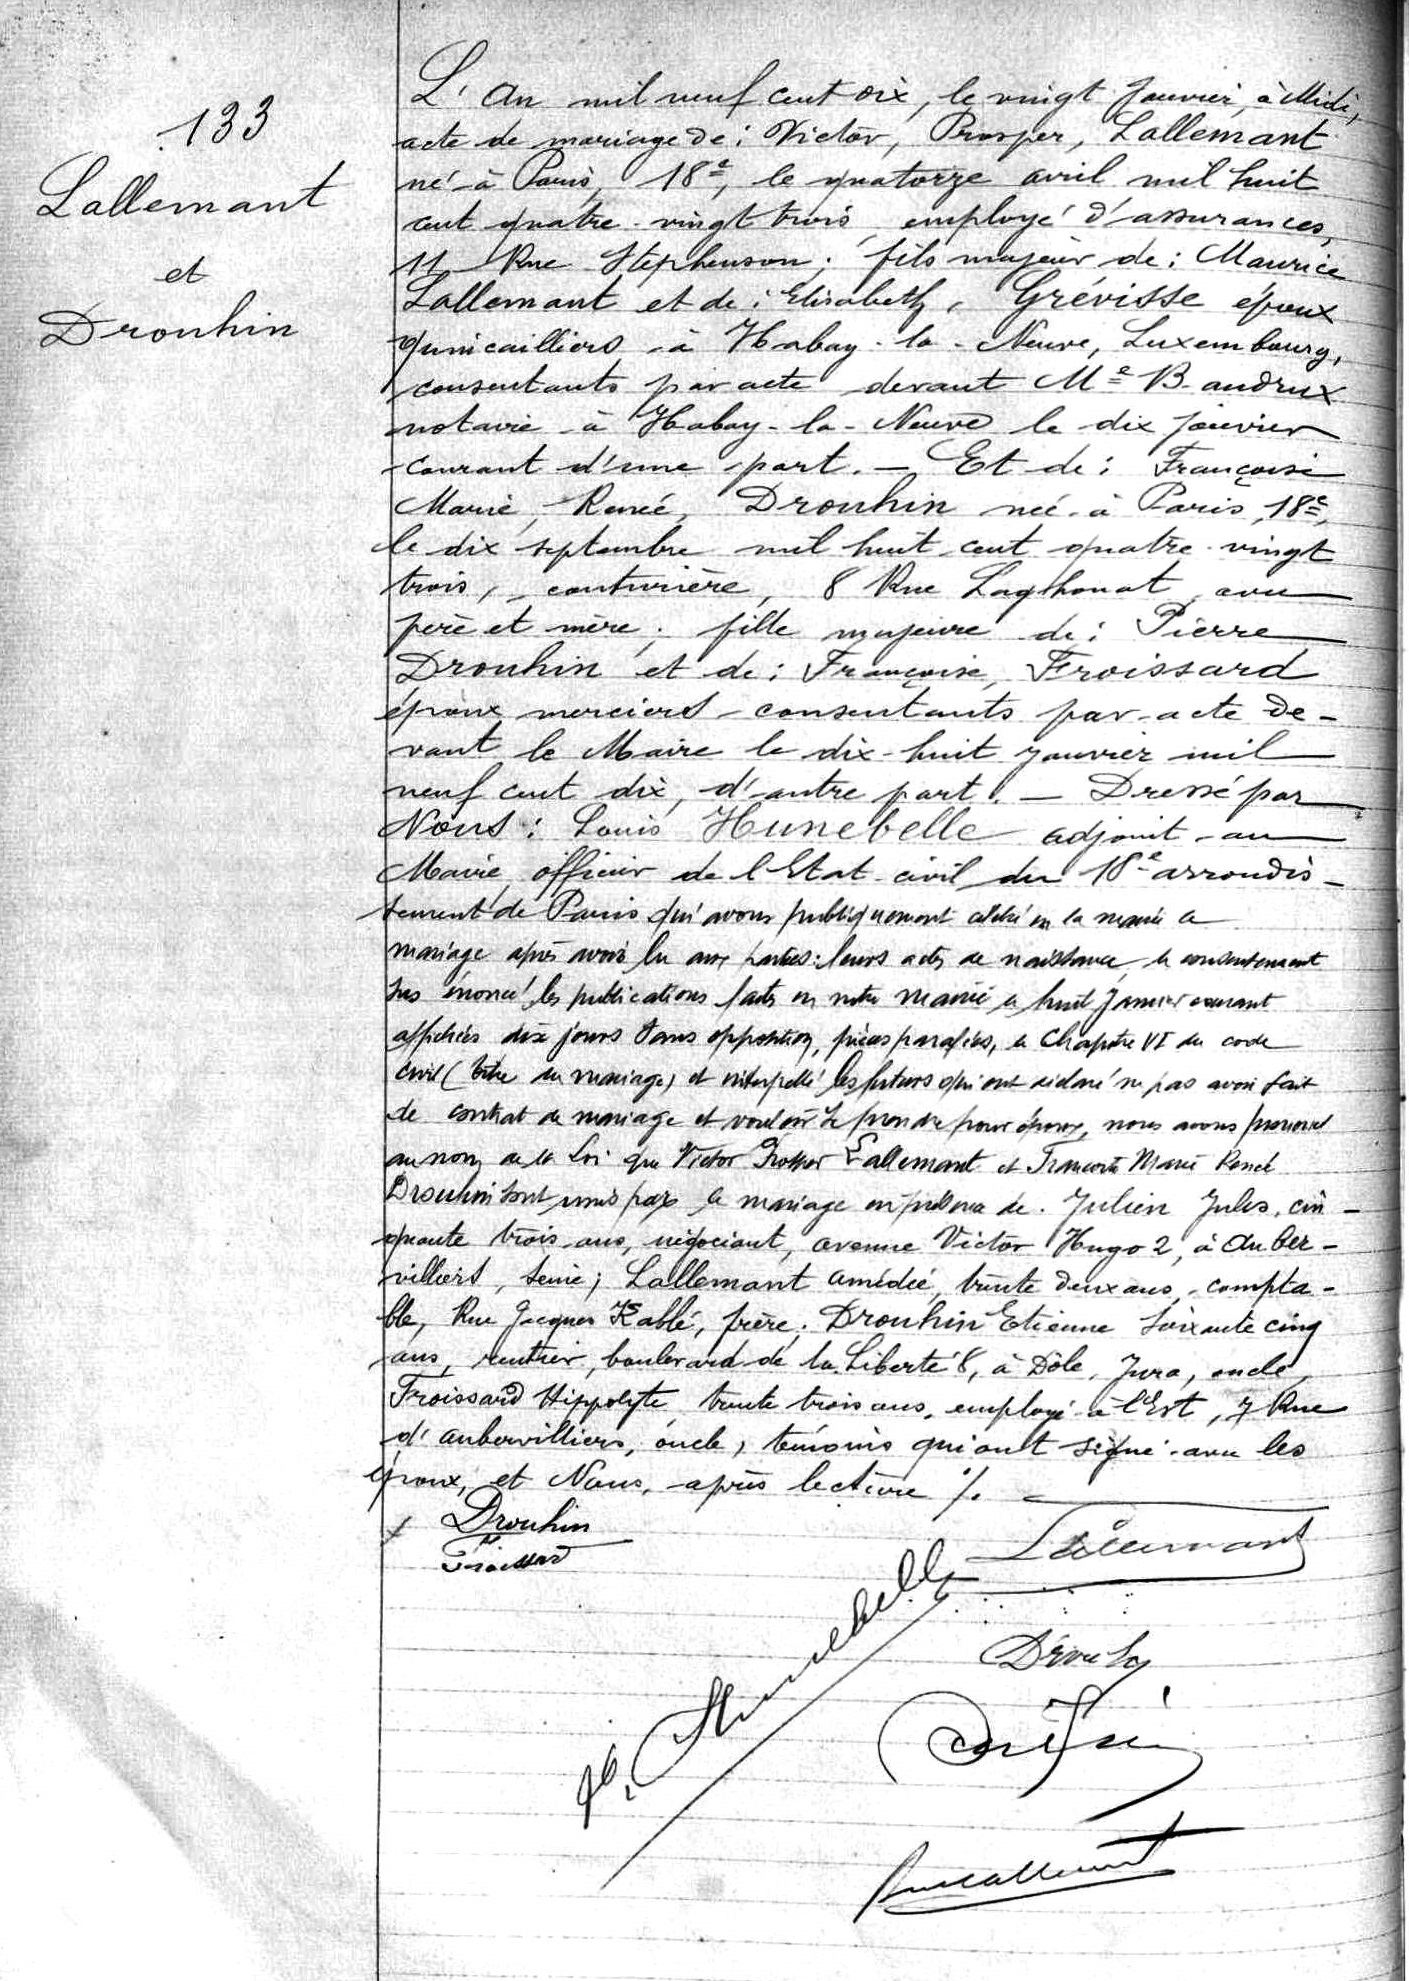 133
Lallemant
et
Drouhin
L'An mil neuf cent dix, le vingt Janvier, à Midi,
acte de mariage de : Victor, Prosper, Lallemant
né à Paris, 18e, le quatorze avril mil huit
cent quatre-vingt trois, employé d'assurances,
11 Rue Stephenson ; fils majeur de : Maurice
Lallemant et de : Elisabeth, Grévisse époux
quincailliers à Habay-la-Neuve, Luxembourg,
consentants par acte devant Me Baudrux
notaire à Habay-la-Neuve le dix janvier
courant d'une part. — Et de : Françoise
Marie, Renée, Drouhin née à Paris, 18e,
le dix septembre mil huit cent quatre-vingt
trois, couturière, 8 Rue Laghouat, avec
père et mère ; fille majeure de : Pierre
Drouhin et de : Françoise, Froissard
époux merciers consentants par acte de-
vant le Maire le dix-huit janvier mil
neuf cent dix, d'autre part. — Dressé par
Nous : Louis Hunebelle adjoint au
Maire, officier de l'Etat-civil du 18e arrondis-
sement de Paris qui avons publiquement célébré en la mairie ce
mariage après avoir lu aux parties : leurs actes de naissance, le consentement
sus énoncé les publications faites en notre mairie le huit Janvier courant
affichées dix jours sans opposition, pièces parafées, le Chapitre VI du code
civil (titre du mariage) et interpellé les futurs qui ont déclaré ne pas avoir fait
de contrat de mariage et vouloir se prendre pour époux, nous avons prononcé
au nom de la Loi que Victor Prosper Lallemant et Françoise Marie Renée
Drouhin sont unis par le mariage en présence de. Julien Jules, cin-
quante trois ans, négociant, avenue Victor Hugo 2, à Auber-
villiers, Seine ; Lallemant Amédée, trente deux ans, compta-
ble, Rue Jacques Kablé, frère ; Drouhin Etienne soixante cinq
ans, rentier, boulevard de la Liberté 8, à Dôle, Jura, oncle,
Froissard Hippolyte trente trois ans, employé à l'Est, 7 Rue
d'Aubervilliers, oncle, témoins qui ont signé avec les
époux, et Nous, après lecture %.
Drouhin
Lallemant
Froissard
Hunebelle
Lallemant